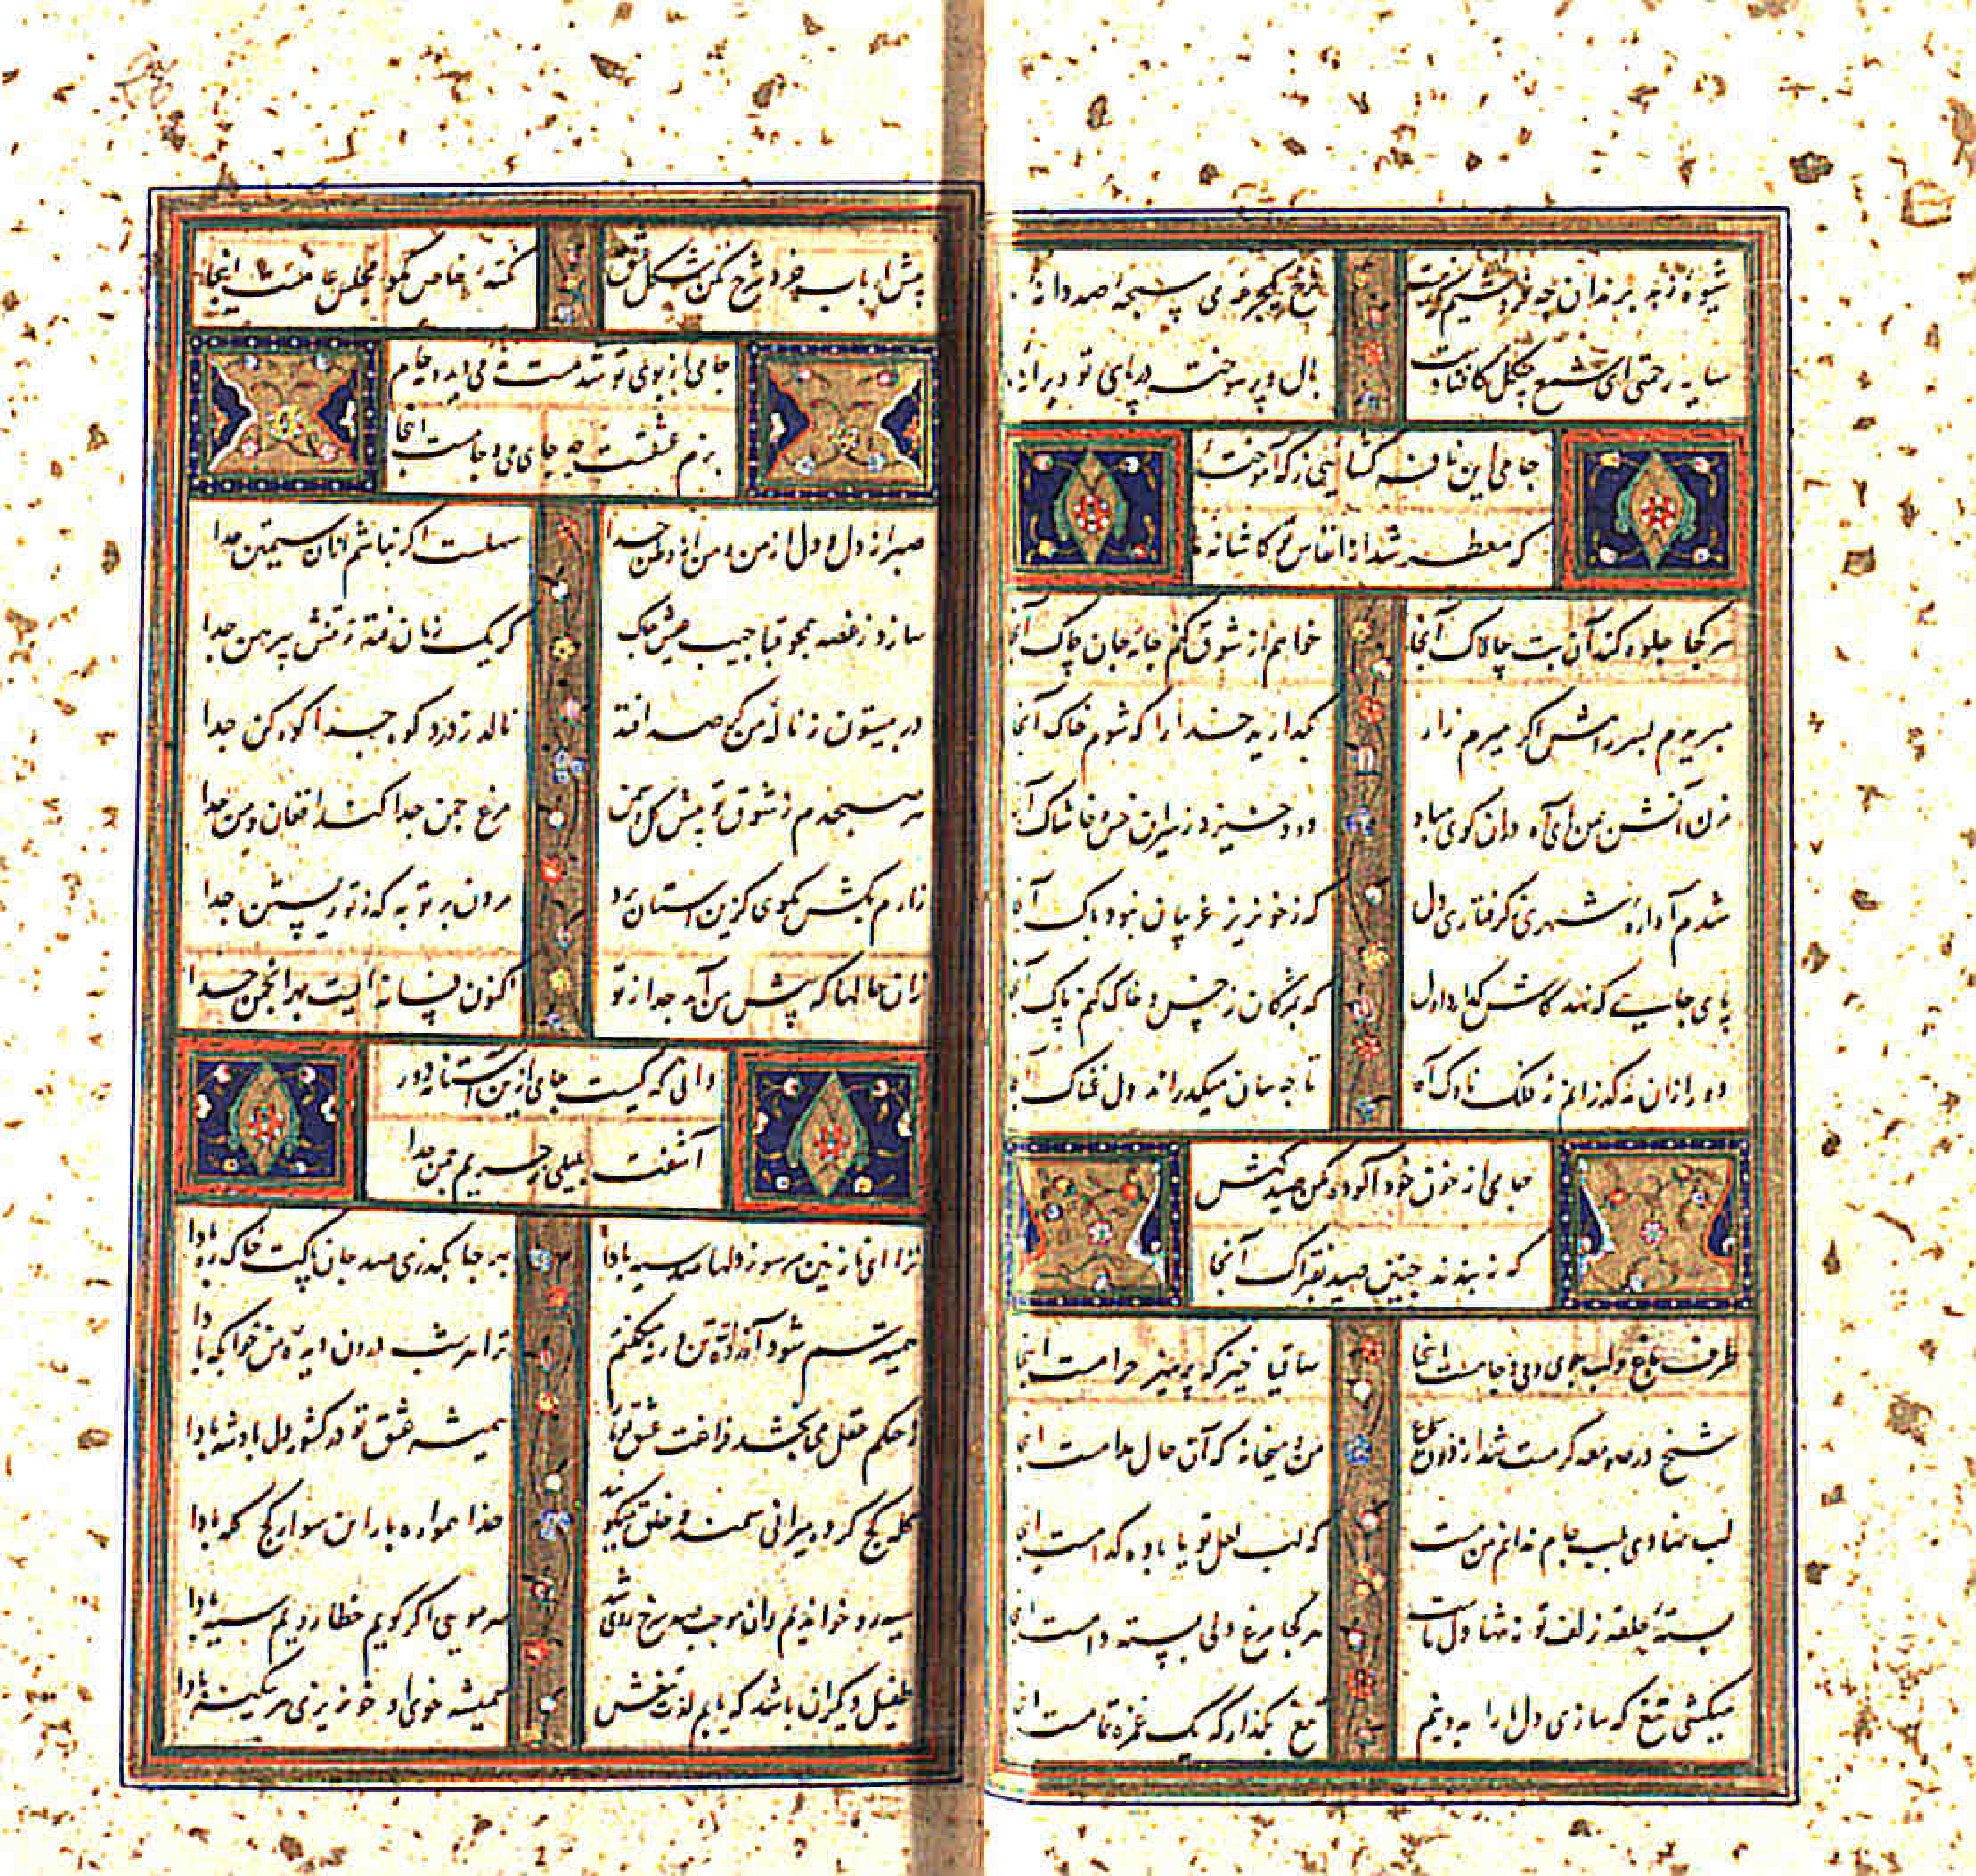 شیوهٔ زهد برندان چه فروشیم که نیست نرخ یکجرعه می سبحهٔ صد دانهٔ ما
سایهٔ رحمتی ای شمع چگل کافتادست بال و پر سوخته در پای تو پروانهٔ ما
جامی این نافه گشایی ز که آموخت
که معطر شد از انفاس تو کاشانهٔ ما
هر کجا جلوه کند آن بت چالاک آنجا خواهم از شوق کنم جامهٔ جان چاک آنجا
میروم بر سر راهش اگر میرم زار بگذارید خدا را که شوم خاک آنجا
مزن آتش بمن ای آه در آن کوی مباد دود خیزد ز خس و خاشاک آنجا
شدم آوارهٔ شهری ز گرفتاری دل که ز خونریز غریبان نبود باک آنجا
پای جایی که نهد کاش گذارد اول که بمژگان ز خس و خاک کنم پاک آنجا
دور ازان مه گذرانم ز فلک ناوک آه تا چه سان میگذراند دل غمناک آنجا
جامی از خون خود آلوده مکن صیدگهش
که نبندند چنین صید بفتراک آنجا
طرف باغ و لب جوی و لب جامست اینجا ساقیا خیز که پرهیز حرامست اینجا
شیخ در صومعه گر مست شد از ذوق سماع من و میخانه که آن حال مدامست اینجا
لب نهادی بلب جام ندانم من مست که لب لعل تو یا باده کدامست اینجا
بستهٔ حلقهٔ زلف تو نه تنها دل ماست هر کجا مرغ دلی بستهٔ دامست اینجا
میکشی تیغ که سازی دل ما را بدو نیم تیغ بگذار که یک غمزه تمامست اینجا
پیش ارباب خرد شرح مکن مشکل عشق نکتهٔ خاص مگو مجلس عامست اینجا
جامی از بوی تو شد مست نه می دیده و جام
بزم عشقست چه جای می و جامست اینجا
صبر از دل و دل از من و من از وطن جدا سهلست اگر نباشم ازان سیمتن جدا
سازد ز غصه همچو قبا جیب عیش چاک گر یک زمان فتد ز تنش پیرهن جدا
در بیستون ز نالهٔ من گر صدا فتد نالد ز درد کوه جدا کوهکن جدا
هر صبحدم ز شوق تو پیش گل و سمن مرغ چمن جدا کند افغان و من جدا
زارم بکش مگوی کزین آستان برو مردن به که ز تو زیستن جدا
زان حالها که پیش من آمد جدا از تو اکنون فسانه ایست بهر انجمن جدا
دانی که کیست جامی ازین آستانه دور
آشفته بلبلی ز حریم چمن جدا
ترا ای نازنین هر سو ز دلها صد سپه بادا بهر جا بگذری صد جان پاکت خاک ره بادا
همی ترسم شود آزرده تن در ترا هر شب درون دیدهٔ من خوابگه بادا
ز حکم عقل می بخشد فراغت عشق تو ما را همیشه عشق تو در کشور دل پادشه بادا
کله کج کرده میرانی سمند و خلق میگویند خدا همواره یار این سوار کج کله بادا
هر مویی اگر گویم خطا رویم سیه بادا
طفیل دیگران باشد که یابم لذت تیغش همیشه خوی او خونریزی هر بیگنه بادا